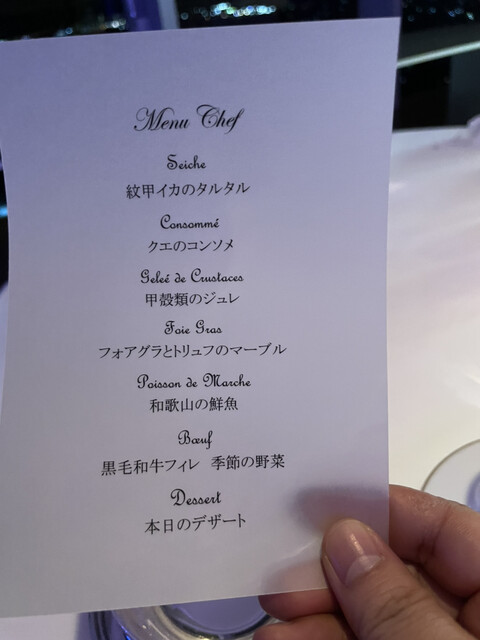 Menu Chef
Seiche
紋甲イカのタルタル
Consommé
クエのコンソメ
Geleé de Crustaces
甲殻類のジュレ
Foie Gras
フォアグラとトリュフのマーブル
Poisson de Marche
和歌山の鮮魚
Bœuf
黒毛和牛フィレ 季節の野菜
Dessert
本日のデザート